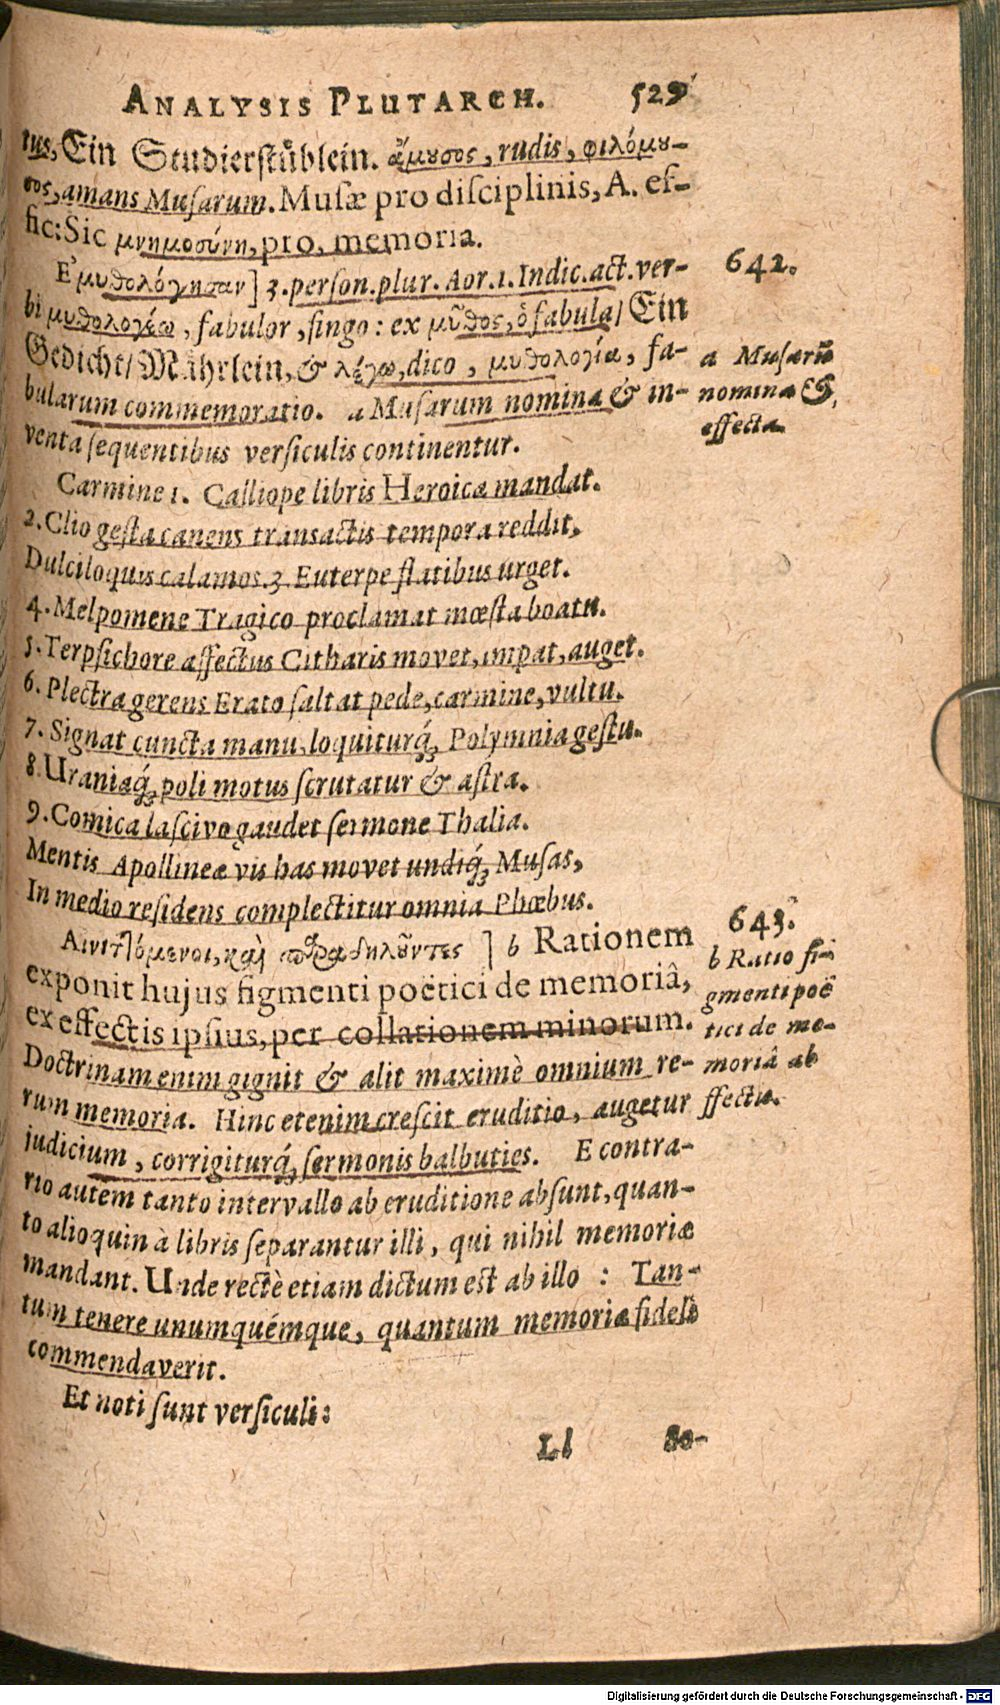 ANALYSIS PLUTARCH. 529
tus, Ein Studierstüblein. ἄμουσος, rudis, φιλόμου-
σος, amans Musarum. Musæ pro disciplinis, A. ef-
fic: Sic μνημοσύνη, pro, memoria.
Ἐμυθολόγησαν] 3. person. plur. Aor. 1. Indic. act. ver-
bi μυθολογέω, fabulor, fingo: ex μῦθος, ὁ fabula/ Ein
Gedicht/ Mährlein, & λέγω, dico, μυθολογία, fa-
bularum commemoratio. a Musarum nomina & in-
venta sequentibus versiculis continentur.
642.
a Musarũ
nomina &
effecta.
Carmine 1. Calliope libris Heroica mandat.
2. Clio gesta canens transactis tempora reddit,
Dulciloquis calamos 3 Euterpe flatibus urget.
4. Melpomene Tragico proclamat mœsta boatu.
5. Terpsichore affectus Citharis movet, impat, auget.
6. Plectra gerens Erato saltat pede, carmine, vultu.
7. Signat cuncta manu, loquiturq́ꝫ Polymnia gestu.
8. Uraniaq́ꝫ poli motus scrutatur & astra.
9. Comica lascivo gaudet sermone Thalia.
Mentis Apollineæ vis has movet undiq́ꝫ Musas,
In medio residens complectitur omnia Phœbus.
Αἰνιττόμενοι, καὶ παραδηλοῦντες] b Rationem
exponit hujus figmenti poëtici de memoriâ,
ex effectis ipsius, per collationem minorum.
Doctrinam enim gignit & alit maximè omnium re-
rum memoria. Hinc etenim crescit eruditio, augetur
judicium, corrigiturq́ꝫ sermonis balbuties. E contra-
rio autem tanto intervallo ab eruditione absunt, quan-
to alioquin à libris separantur illi, qui nihil memoriæ
mandant. Unde rectè etiam dictum est ab illo : Tan-
tum tenere unumquémque, quantum memoriæ fideli
commendaverit.
Et noti sunt versiculi:
643.
b Ratio fi-
gmenti poë
tici de me-
moriâ ab
ffectu.
Ll